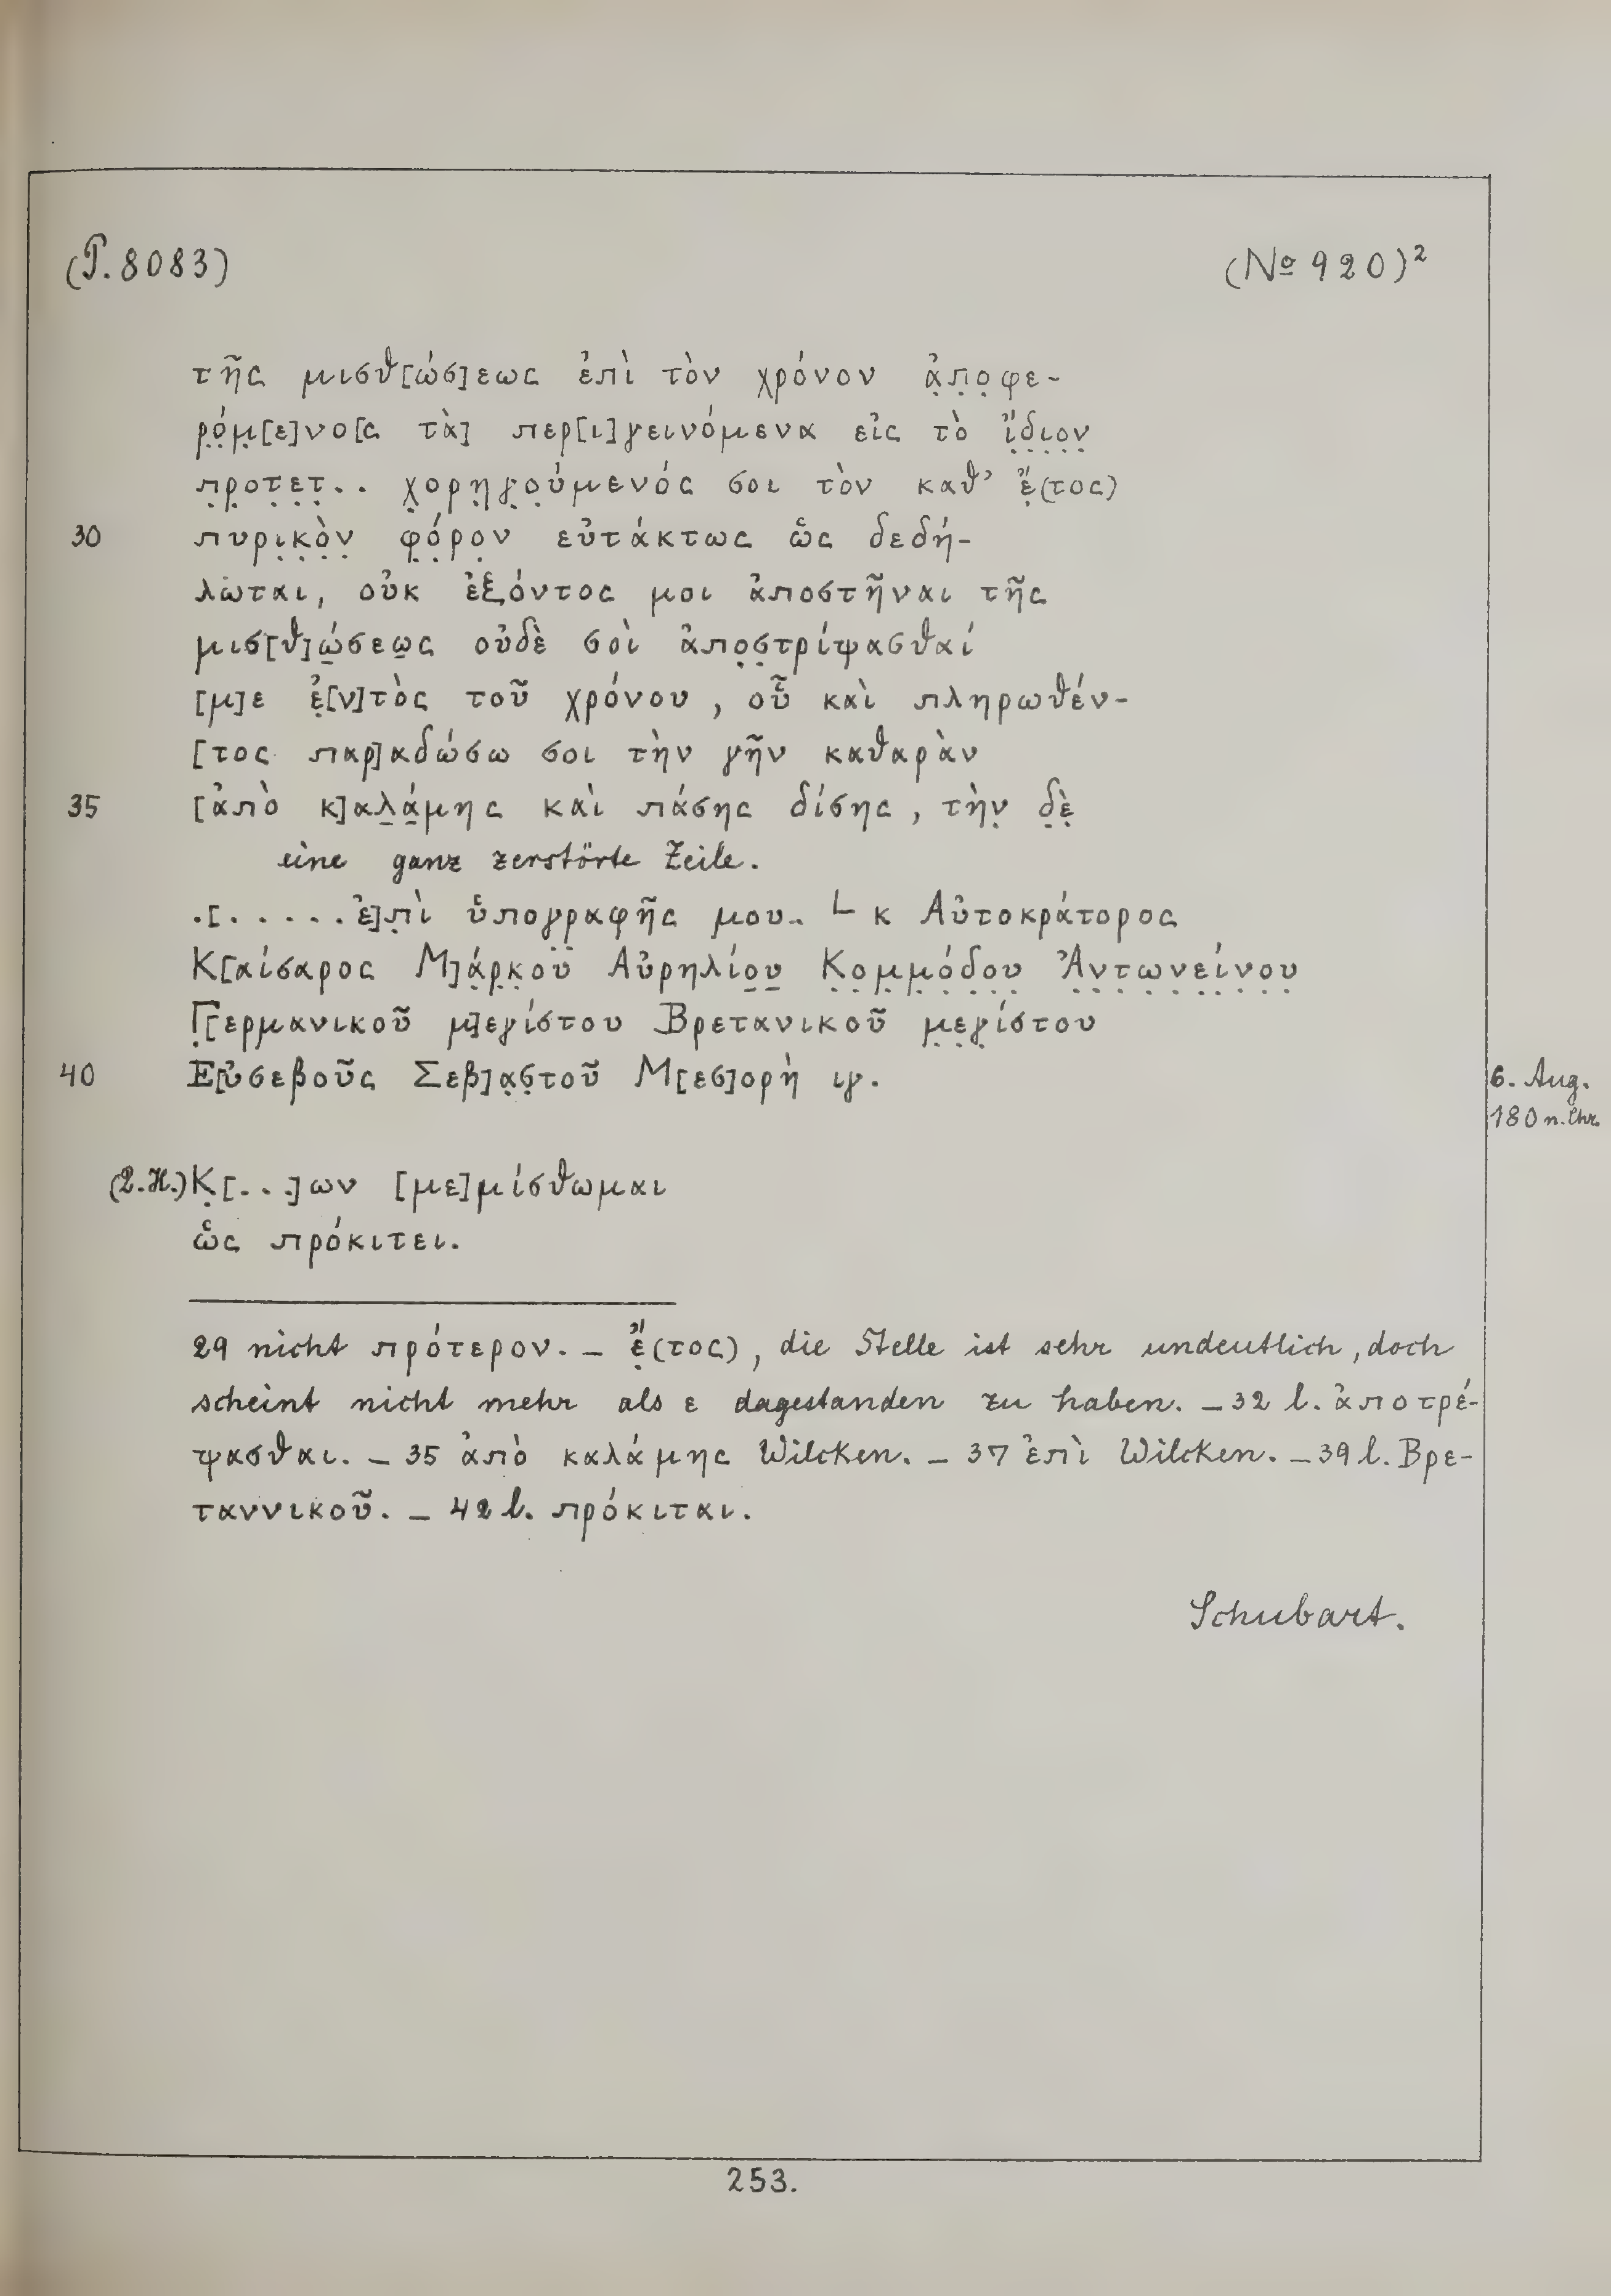 (P. 8083) (№ 920)²
τῆς μισθ[ώσ]εως ἐπὶ τὸν χρόνον ἀ̣π̣ο̣φε-
ρ̣ό̣μ̣[ε]νο[ς τὰ] περ[ι]γεινόμενα εἰς τὸ ἴ̣δ̣ι̣ο̣ν̣
π̣ρ̣ο̣τ̣ε̣τ̣.. χ̣ορη̣γ̣ο̣ύμενός σοι τὸν καθ’ ἔ̣(τος)
30 πυρι̣κ̣ὸ̣ν̣ φ̣ό̣ρο̣ν εὐτάκτως ὡς δεδή-
λωται, οὐκ ἐξόντος μοι ἀποστῆναι τῆς
μισ[θ]ώ̣σεω̣ς οὐδὲ σοὶ ἀπο̣σ̣τρίψασθαί
[μ]ε ἐ̣[ν]τὸς τοῦ χρόνου, οὗ καὶ πληρωθέν-
[τος παρ]αδώσω σοι τὴν γῆν καθαρὰν
35 [ἀπὸ κ]αλ̣ά̣μης καὶ πάσης δίσης, τὴν̣ δ̣ὲ̣
eine ganz zerstörte Zeile.
.[.....ἐ]π̣ὶ ὑπογραφῆς μου. └ κ Αὐτοκράτορος
Κ[αίσαρος Μ]ά̣ρ̣κ̣οϋ Αὐρηλίο̣υ̣ Κ̣ο̣μ̣μ̣ό̣δ̣ο̣υ̣ Ἀ̣ν̣τ̣ω̣ν̣ε̣ί̣ν̣ο̣υ̣
Γ̣[ερμανικοῦ μ]εγίστου Βρετανικοῦ μ̣ε̣γ̣ίστου
40 Ε[ὐσεβοῦς Σεβ]α̣σ̣τοῦ Μ[εσ]ορὴ ιγ. 6. Aug.
180 n. Chr.
(2. H.) Κ̣[...]ων [με]μίσθωμαι
ὡς πρόκιτει.
29 nicht πρότερον. – ἔ̣(τος), die Stelle ist sehr undeutlich, doch
scheint nicht mehr als ε dagestanden zu haben. – 32 l. ἀποτρέ-
ψασθαι. – 35 ἀπὸ καλάμης Wilcken. – 37 ἐπὶ Wilcken. – 39 l. Βρε-
ταννικοῦ. – 42 l. πρόκιται.
Schubart.
253.